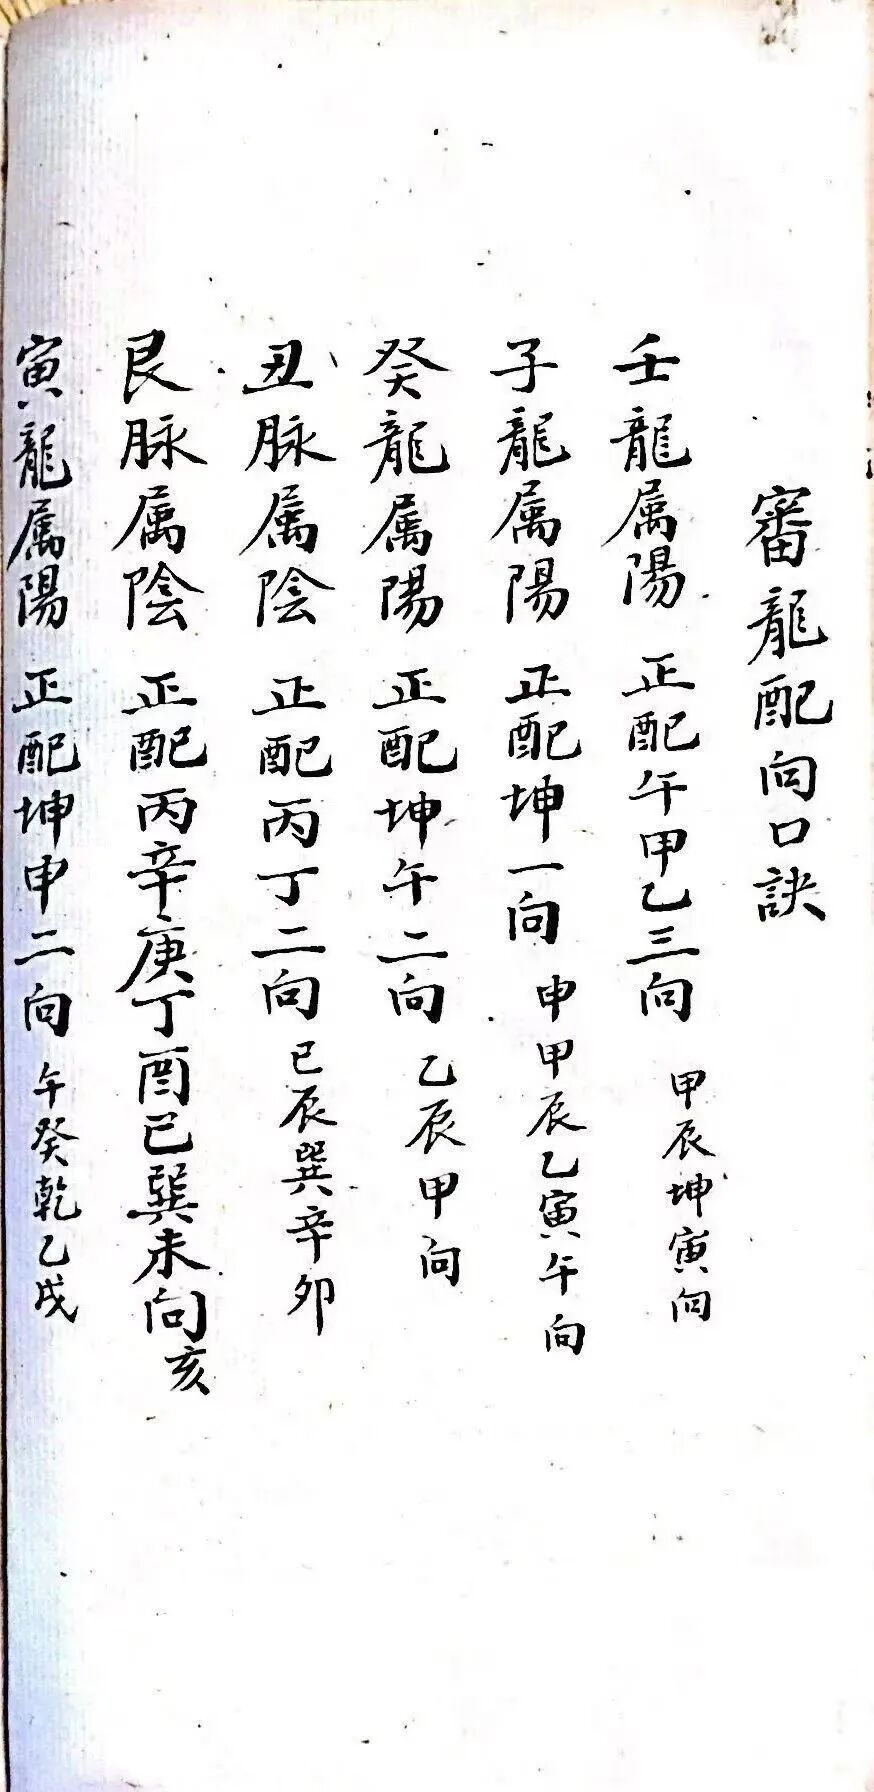 審龍配向口訣
壬龍属陽 正配午甲乙三向 甲辰坤寅向
子龍属陽 正配坤一向 申甲辰乙寅午向
癸龍属陽 正配坤午二向 乙辰甲向
丑脉属陰 正配丙丁二向 巳辰巽辛卯
艮脉属陰 正配丙辛庚丁酉巳巽未向亥
寅龍属陽 正配坤申二向 午癸乾乙戌